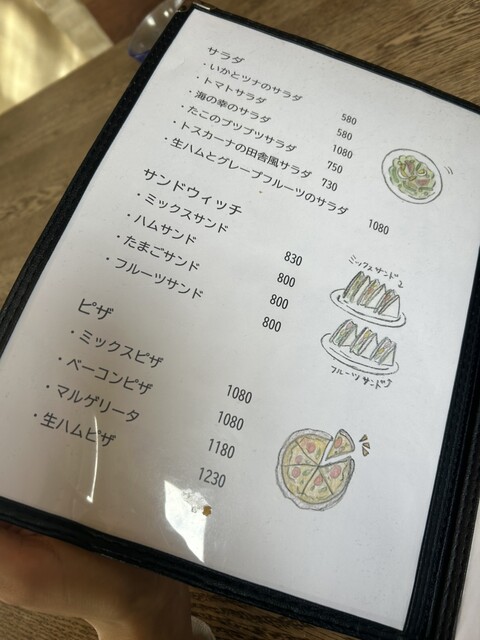 サラダ
・いかとツナのサラダ 580
・トマトサラダ 580
・海の幸のサラダ 1080
・たこのブツブツサラダ 750
・トスカーナの田舎風サラダ 730
・生ハムとグレープフルーツのサラダ 1080
サンドウィッチ
・ミックスサンド 830
・ハムサンド 800
・たまごサンド 800
・フルーツサンド 800
ミックスサンド
フルーツサンド
ピザ
・ミックスピザ 1080
・ベーコンピザ 1080
・マルゲリータ 1180
・生ハムピザ 1230